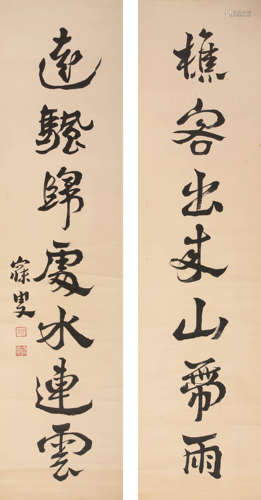 樵客出來山帶雨
遠颿歸處水連雲
寐叟